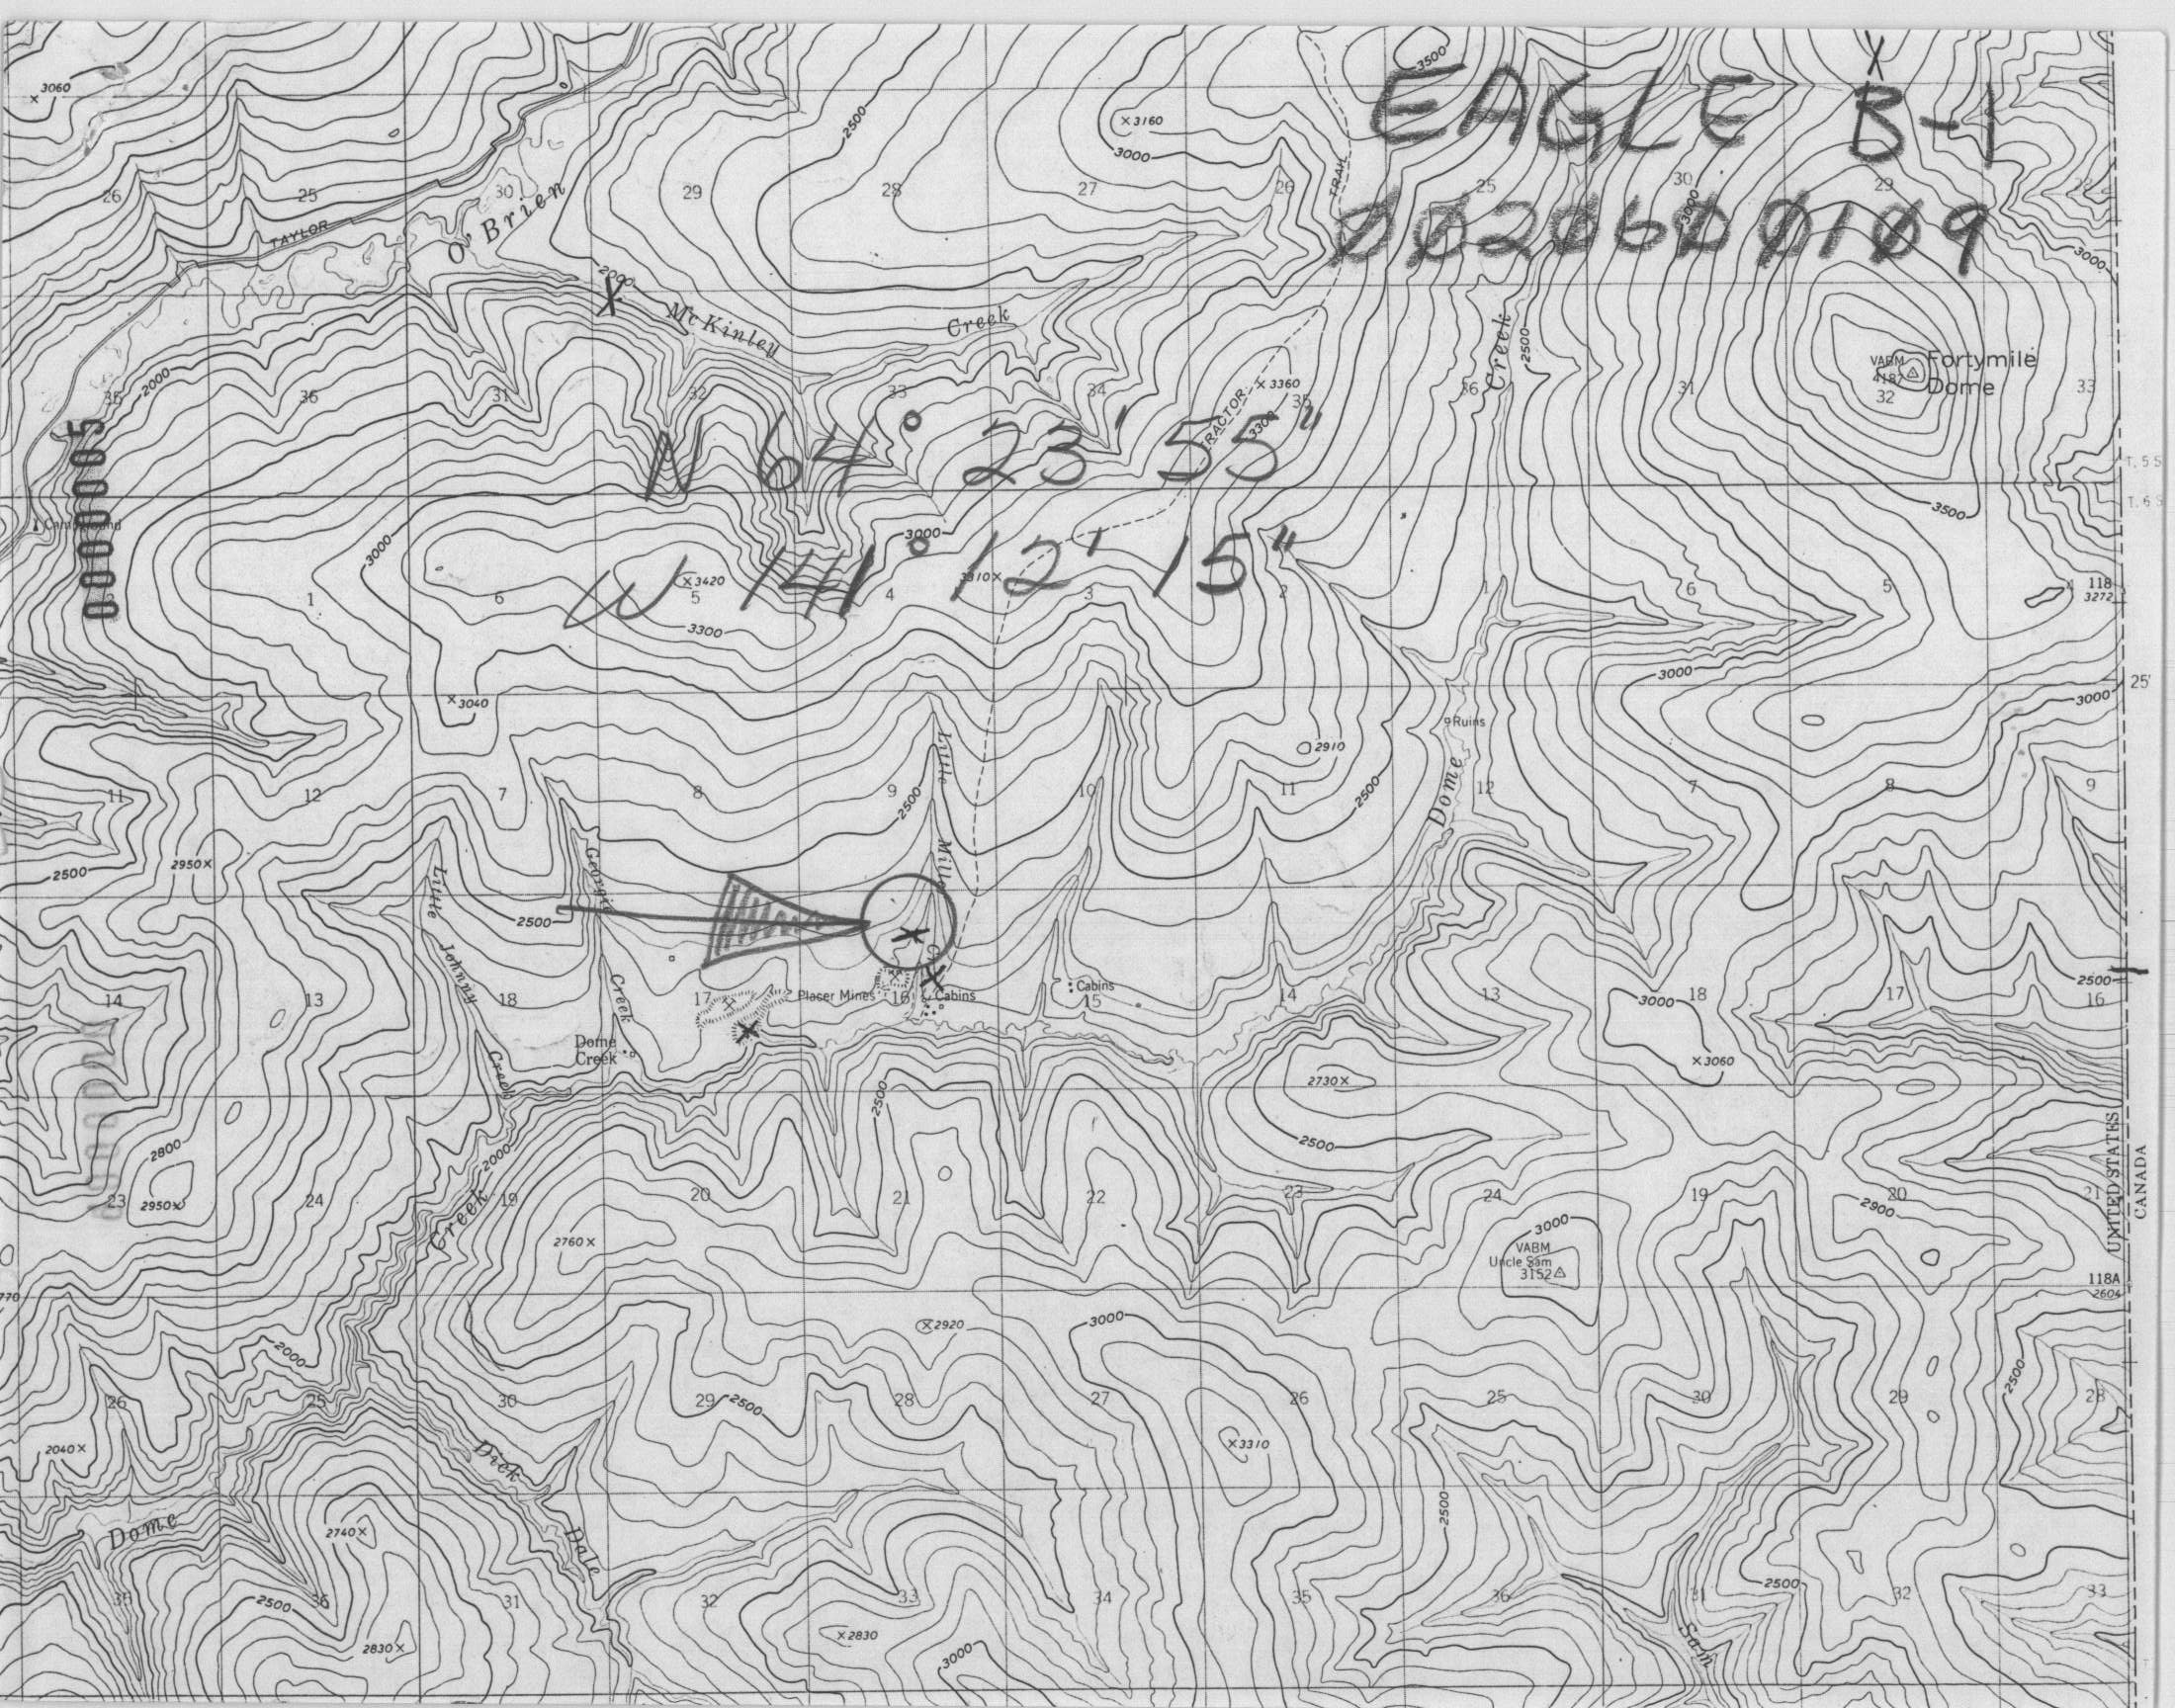 3500
X
EAGLE B-1
3060
3160
2500
3000
26
25
30
29
28
27
26
TRAIL
25
30
29
28
3000
TAYLOR
O'Brien
0020600109
3000
2000
X
McKinley
Creek
Creek
2500
VABM
4187
Fortymile
Dome
35
2000
36
31
32
33
34
3360
35
36
31
32
33
TRACTOR
3300
N 64° 23' 55"
T. 5 S
T. 6 S
3500
Campground
3000
3000
W 141° 12' 15"
3420
3310
1
6
5
4
3
2
1
6
5
4
118
3272
3300
3000
25'
3040
3000
Ruins
Little
2910
11
12
7
8
9
2500
10
11
2500
Dome
12
7
8
9
2950
2500
Little
Georgie
Miller
2500
X
Johnny
2500
14
13
18
Creek
17
Placer Mines
16
Cabins
Cabins
15
14
13
3000
18
17
16
X
Dome
Creek
Creek
3060
2730
2500
2500
2800
2000
UNITED STATES
CANADA
23
2950
24
Creek
19
20
21
22
23
24
19
2900
20
21
2760
3000
VABM
Uncle Sam
3152
118A
2604
770
2920
3000
2000
2500
26
25
30
29
2500
28
27
26
25
30
29
28
2040
Dick
3310
2500
Dome
2740
Dale
35
2500
36
31
32
33
34
35
36
31
2500
32
33
2830
2830
3000
Sam